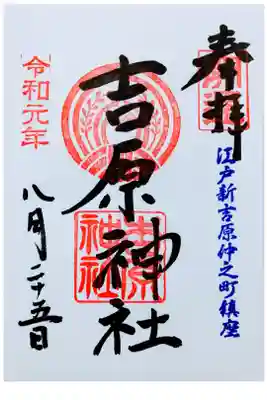 奉拝
江戸新吉原仲之町鎮座
吉原神社
吉原神社
令和元年
八月二十五日